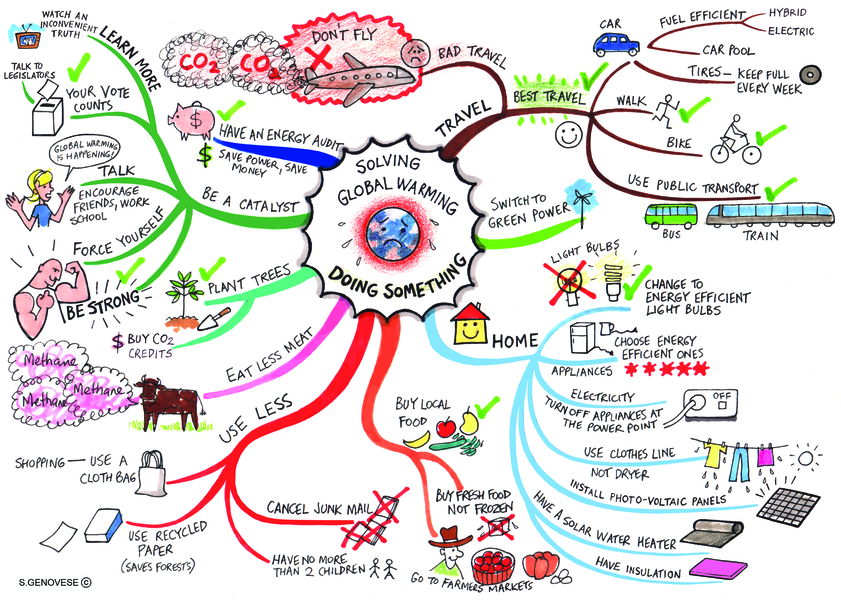 SOLVING
GLOBAL WARMING
DOING SOMETHING
TRAVEL
BAD TRAVEL
DON'T FLY
CO2
CO2
BEST TRAVEL
CAR
FUEL EFFICIENT
HYBRID
ELECTRIC
CAR POOL
TIRES — KEEP FULL
EVERY WEEK
WALK
BIKE
USE PUBLIC TRANSPORT
BUS
TRAIN
SWITCH TO
GREEN POWER
HOME
LIGHT BULBS
CHANGE TO
ENERGY EFFICIENT
LIGHT BULBS
CHOOSE ENERGY
EFFICIENT ONES
APPLIANCES
ELECTRICITY
TURN OFF APPLIANCES AT
THE POWER POINT
OFF
USE CLOTHES LINE
NOT DRYER
INSTALL PHOTO-VOLTAIC PANELS
HAVE A SOLAR WATER HEATER
HAVE INSULATION
BUY LOCAL
FOOD
BUY FRESH FOOD
NOT FROZEN
GO TO FARMERS MARKETS
USE LESS
SHOPPING — USE A
CLOTH BAG
USE RECYCLED
PAPER
(SAVES FORESTS)
CANCEL JUNK MAIL
HAVE NO MORE
THAN 2 CHILDREN
EAT LESS MEAT
Methane
Methane
Methane
PLANT TREES
$ BUY CO2
CREDITS
BE A CATALYST
LEARN MORE
WATCH AN
INCONVENIENT
TRUTH
TALK TO
LEGISLATORS
YOUR VOTE
COUNTS
GLOBAL WARMING
IS HAPPENING!
TALK
ENCOURAGE
FRIENDS, WORK
SCHOOL
FORCE YOURSELF
BE STRONG
HAVE AN ENERGY AUDIT
$
$ SAVE POWER, SAVE
MONEY
S.GENOVESE ©